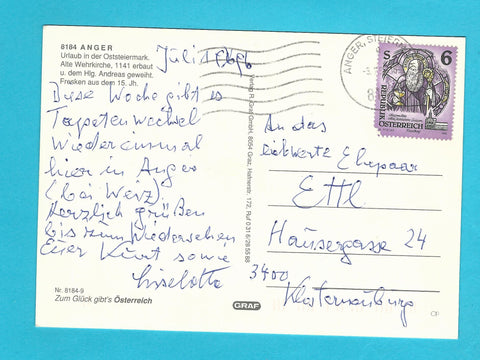 8184 ANGER
Urlaub in der Oststeiermark.
Alte Wehrkirche, 1141 erbaut
u. dem Hlg. Andreas geweiht.
Fresken aus dem 15. Jh.
Juli 1996
Diese Woche gibt es
Tapetenwechsel
Wieder einmal
hier in Anger
(bei Werz)
Herzlich grüßen
bis zum Wiedersehen
Euer Kurt sowie
Liselotte
Nr. 8184-9
Zum Glück gibt's Österreich
Verlag R. Graf GmbH, 8054 Graz, Hafnerstr. 172, Ruf 0316/28 55 88
GRAF
ANGER, STEIER
S 6
REPUBLIK
ÖSTERREICH
An das
liebwerte Ehepaar
Ettl
Hausergasse 24
3400
Klosterneuburg
CP